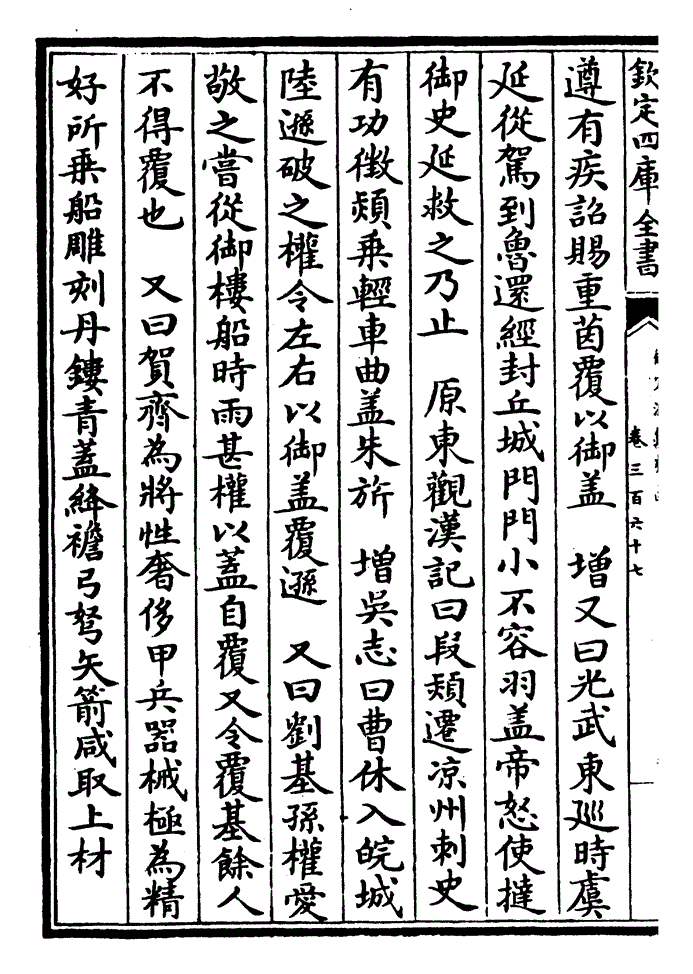 欽定四庫全書
卷三百六十七
遵有疾詔賜重茵覆以御盖　增又曰光武東廵時虞
延從駕到魯還經封丘城門門小不容羽盖帝怒使撻
御史延救之乃止　原東觀漢記曰段熲遷凉州刺史
有功徴熲乗輕車曲盖朱旂　增吳志曰曹休入皖城
陸遜破之權令左右以御盖覆遜　又曰劉基孫權愛
敬之嘗從御樓船時雨甚權以蓋自覆又令覆基餘人
不得覆也　又曰賀齊為將性奢侈甲兵器械極為精
好所乗船雕刻丹鏤青蓋絳襜弓弩矢箭咸取上材